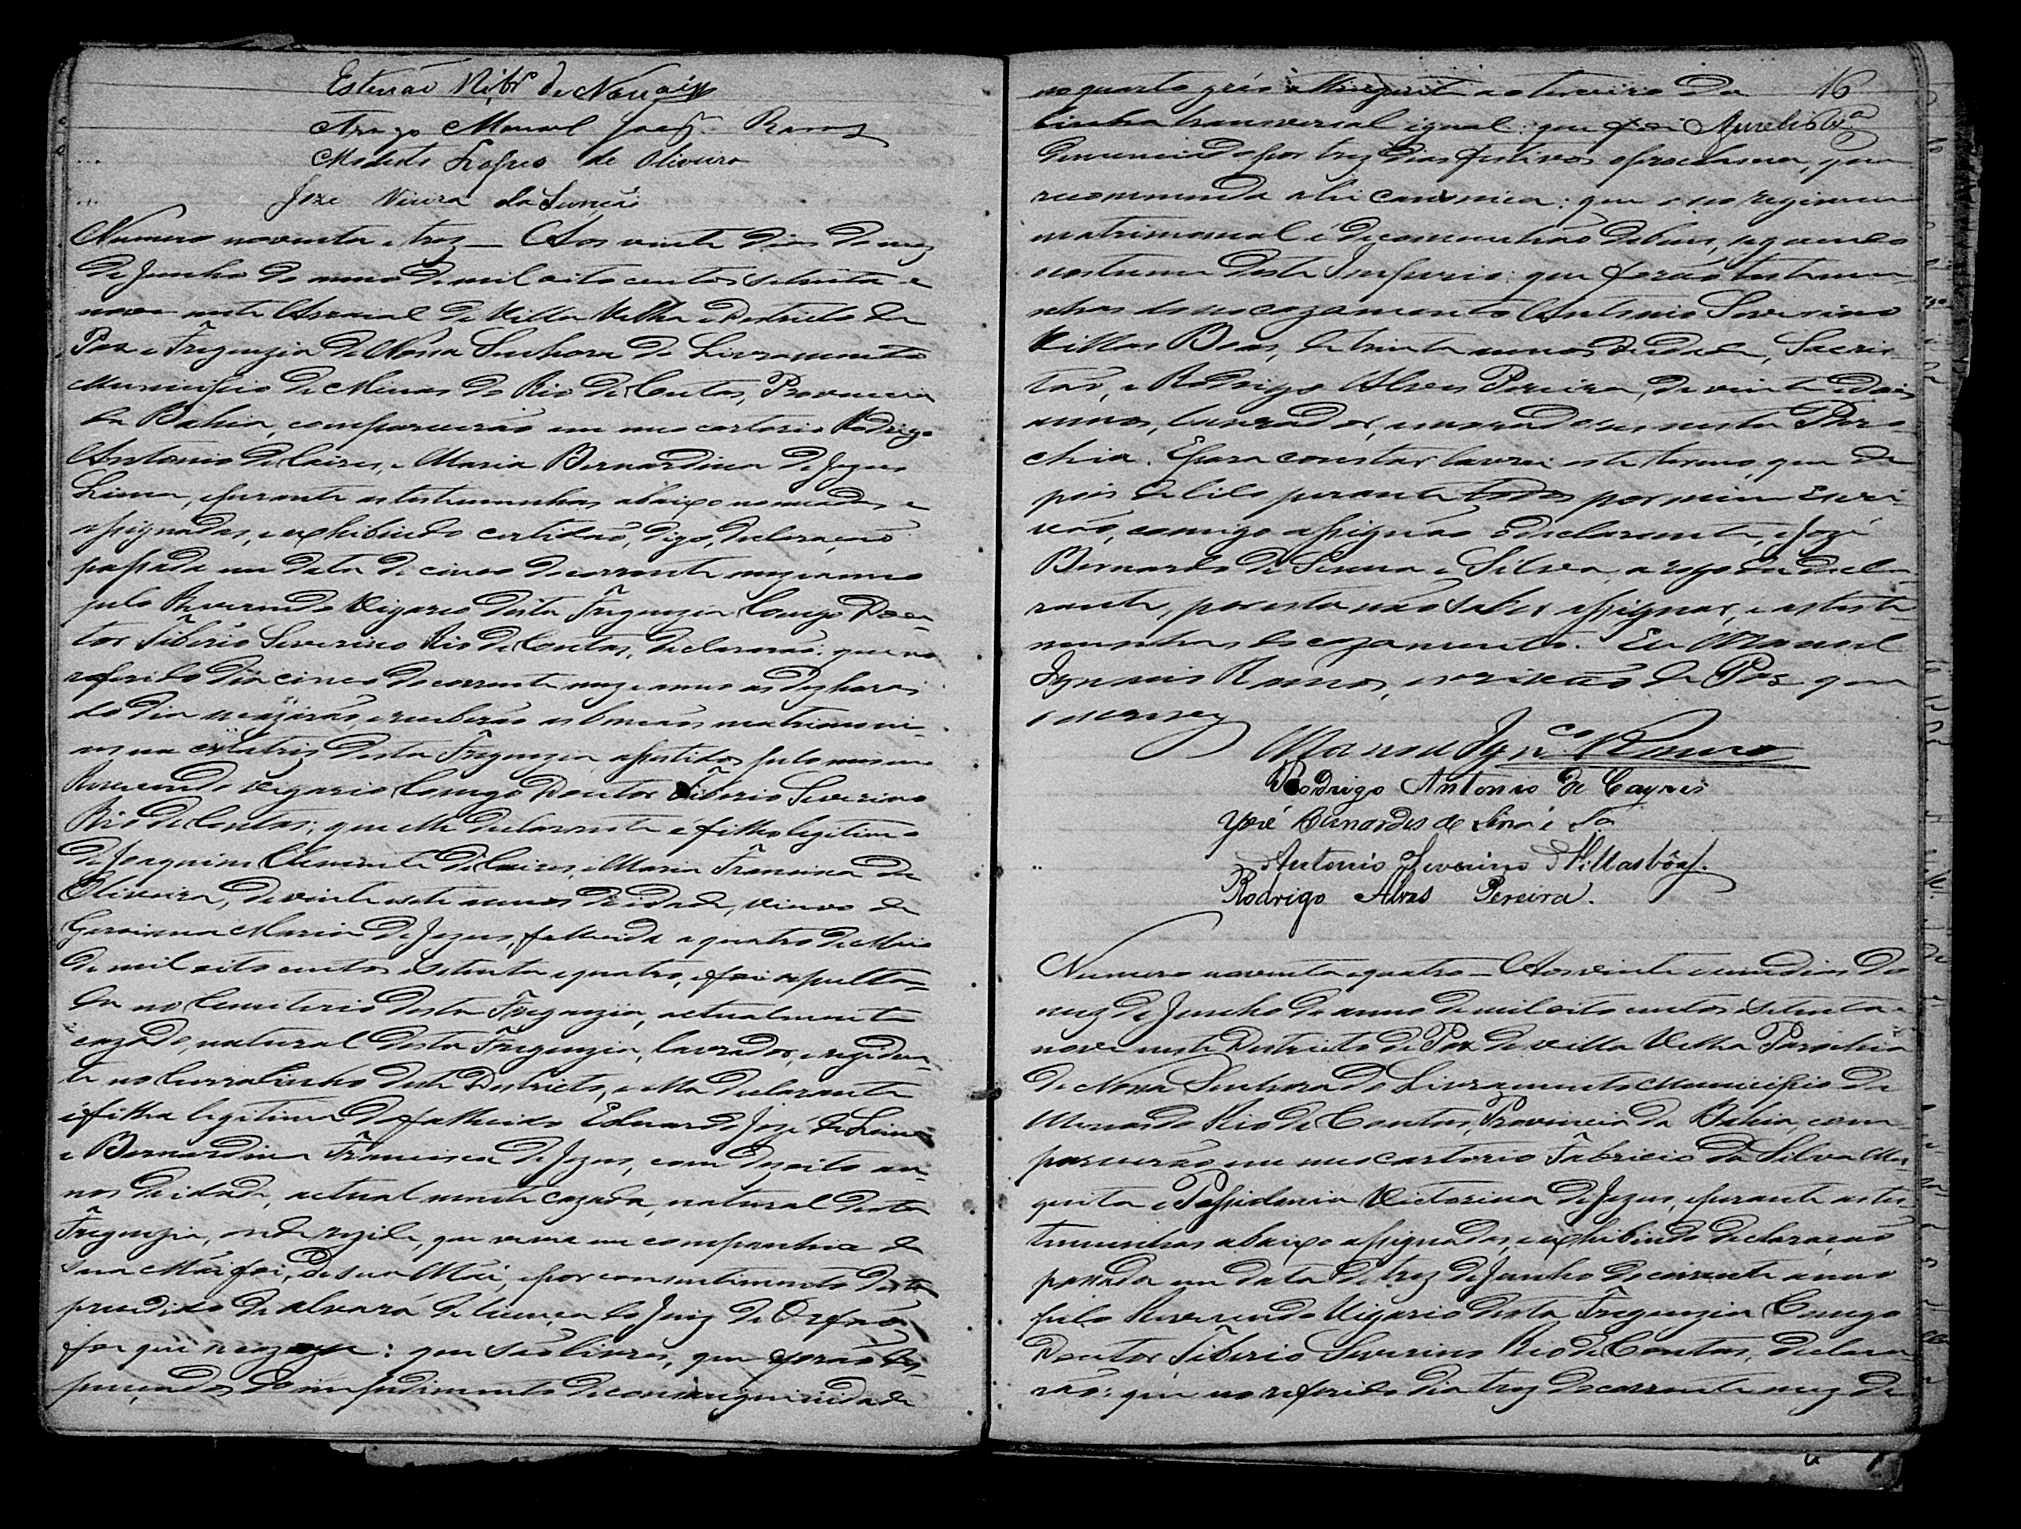 Estevão Ribr.º de Novaiz
Arogo Manoel Joaq.m Ramos
Modesto de Oliveira
Joze Vieira da Sunção
Numero noventa e trez — Aos vinte dias do mez
de Junho do anno de mil oito centos setenta e
nove neste Arraial de Villa Velha e Destricto de
Paz e Freguezia de Nossa Senhora do Livramento
Municipio de Minas do Rio de Contas, Provincia
da Bahia, comparecerão em meo cartorio Rodrigo
Antonio de Caires, e Maria Bernardina de Jezus
Lima, e perante as testemunhas abaixo nomeadas e
assignadas, e exhibindo certidão, digo, declaração
passada em data de cinco do corrente mez e anno
pelo Reverendo Vigario desta Freguezia Conego Dou-
tor Tiberio Severino Rio de Contas, declararão: que no
referido dia cinco do corrente mez e anno as dez horas
do dia se cazárão, e receberão as bençãos matrimoni-
aes na Matriz desta Freguezia assistidos pelo mesmo
Reverendo Vigario Conego Doutor Tiberio Severino
Rio de Contas; que elle declarante é filho legitimo
de Joaquim Clemente de Caires, e Maria Francisca de
Oliveira, de vinte e sete annos de idade, viuvo de
Geroina Maria de Jezus, fallecida a quatro de Maio
de mil oito centos e setenta e quatro, e foi sepulta-
da no Cemiterio desta Freguezia, actualmente
cazado, natural desta Freguezia, lavrador, e reziden-
te no Curralinho deste Destricto, e ella declarante
é filha legitima do falhecido Eduardo Joze de Lima
e Bernardina Francisca de Jezus, com dezoito an-
nos de idade, actualmente cazada, natural desta
Freguezia, onde rezide, que vivia em companhia de
sua Mãi foi, de sua Mãi, e por consentimento desta
precedido de alvará de licença do Juiz de Orfãos
foi que se cazou: que são livres, que forão dis-
pençados do impedimento de consanguinidade
no quarto gráo attingente ao terceiro da 16
linha transversal igual: que foi Aurelio
denunciado por trez dias festivos o proclama, que
recommenda a lei canonica: que o seo regimem
matrimonial é de communhão de bens, segundo
o costume deste Imperio: que forão testemu-
nhas do seo cazamento Antonio Severino
Villas Boas, de trinta annos de idade, Sacris-
tão, e Rodrigo Alves Pereira, de vinte e dois
annos, lavrador, moradores nesta Paro-
chia. E para constar lavrei este termo, que de-
pois de lido perante todos por mim Escri-
vão, comigo assignão o declarante, e Jozé
Bernardo de Senna e Silva, a rogo da decla-
rante, por esta não saber assignar, e as teste-
munhas do cazamento. Eu Manoel
Ignacio Ramos, escrivão de Paz que
o escrevy
Manoel Ign.co Ramos
Rodrigo Antonio de Cayres
José Bernardes de Sena e Sa
Antonio Severino Villasbôas.
Rodrigo Alves Pereira.
Numero noventa e quatro — Aos vinte e um dias do
mez de Junho do anno de mil oito centos setenta e
nove neste Destricto de Paz de Villa Velha Parochia
de Nossa Senhora do Livramento Municipio de
Minas do Rio de Contas, Provincia da Bahia, com-
parecerão em meo cartorio Fabricio da Silva
e Victorina de Jezus, e perante as tes-
temunhas abaixo assignadas, e exhibindo declaração
passada em data de trez de Junho do corrente anno
pelo Reverendo Vigario desta Freguezia Conego
Doutor Tiberio Severino Rio de Contas, declara-
rão: que no referido dia trez do corrente mez de